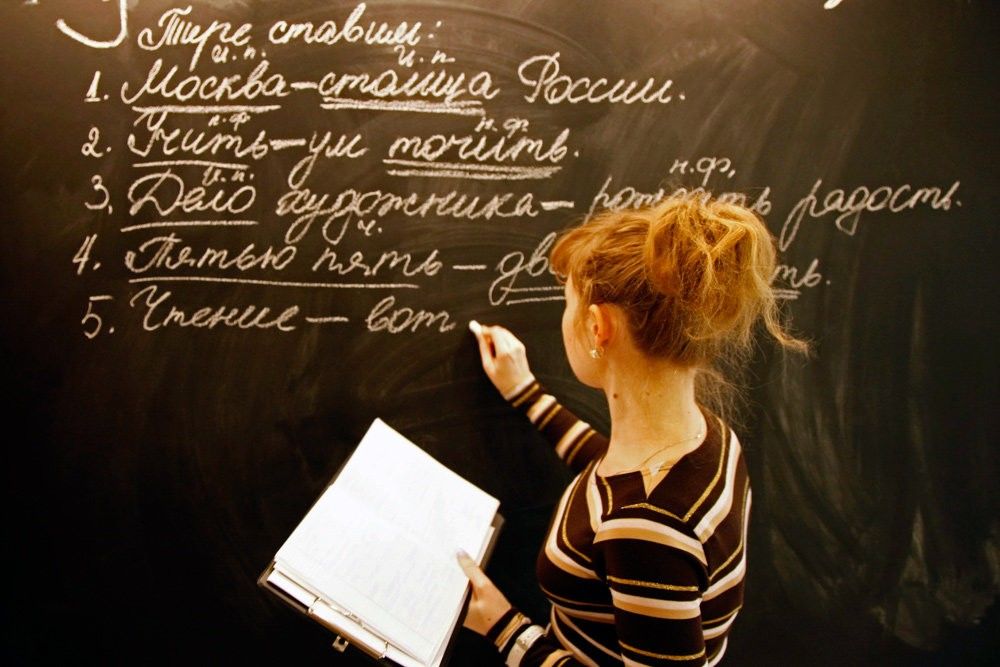 Тире ставим:
И.п. И.п.
1. Москва – столица России.
н.ф н.ф.
2. Учить – ум точить.
И.п. н.ф.
3. Дело художника – радость.
ч.
4. Пятью пять –
5. Чтение – вот